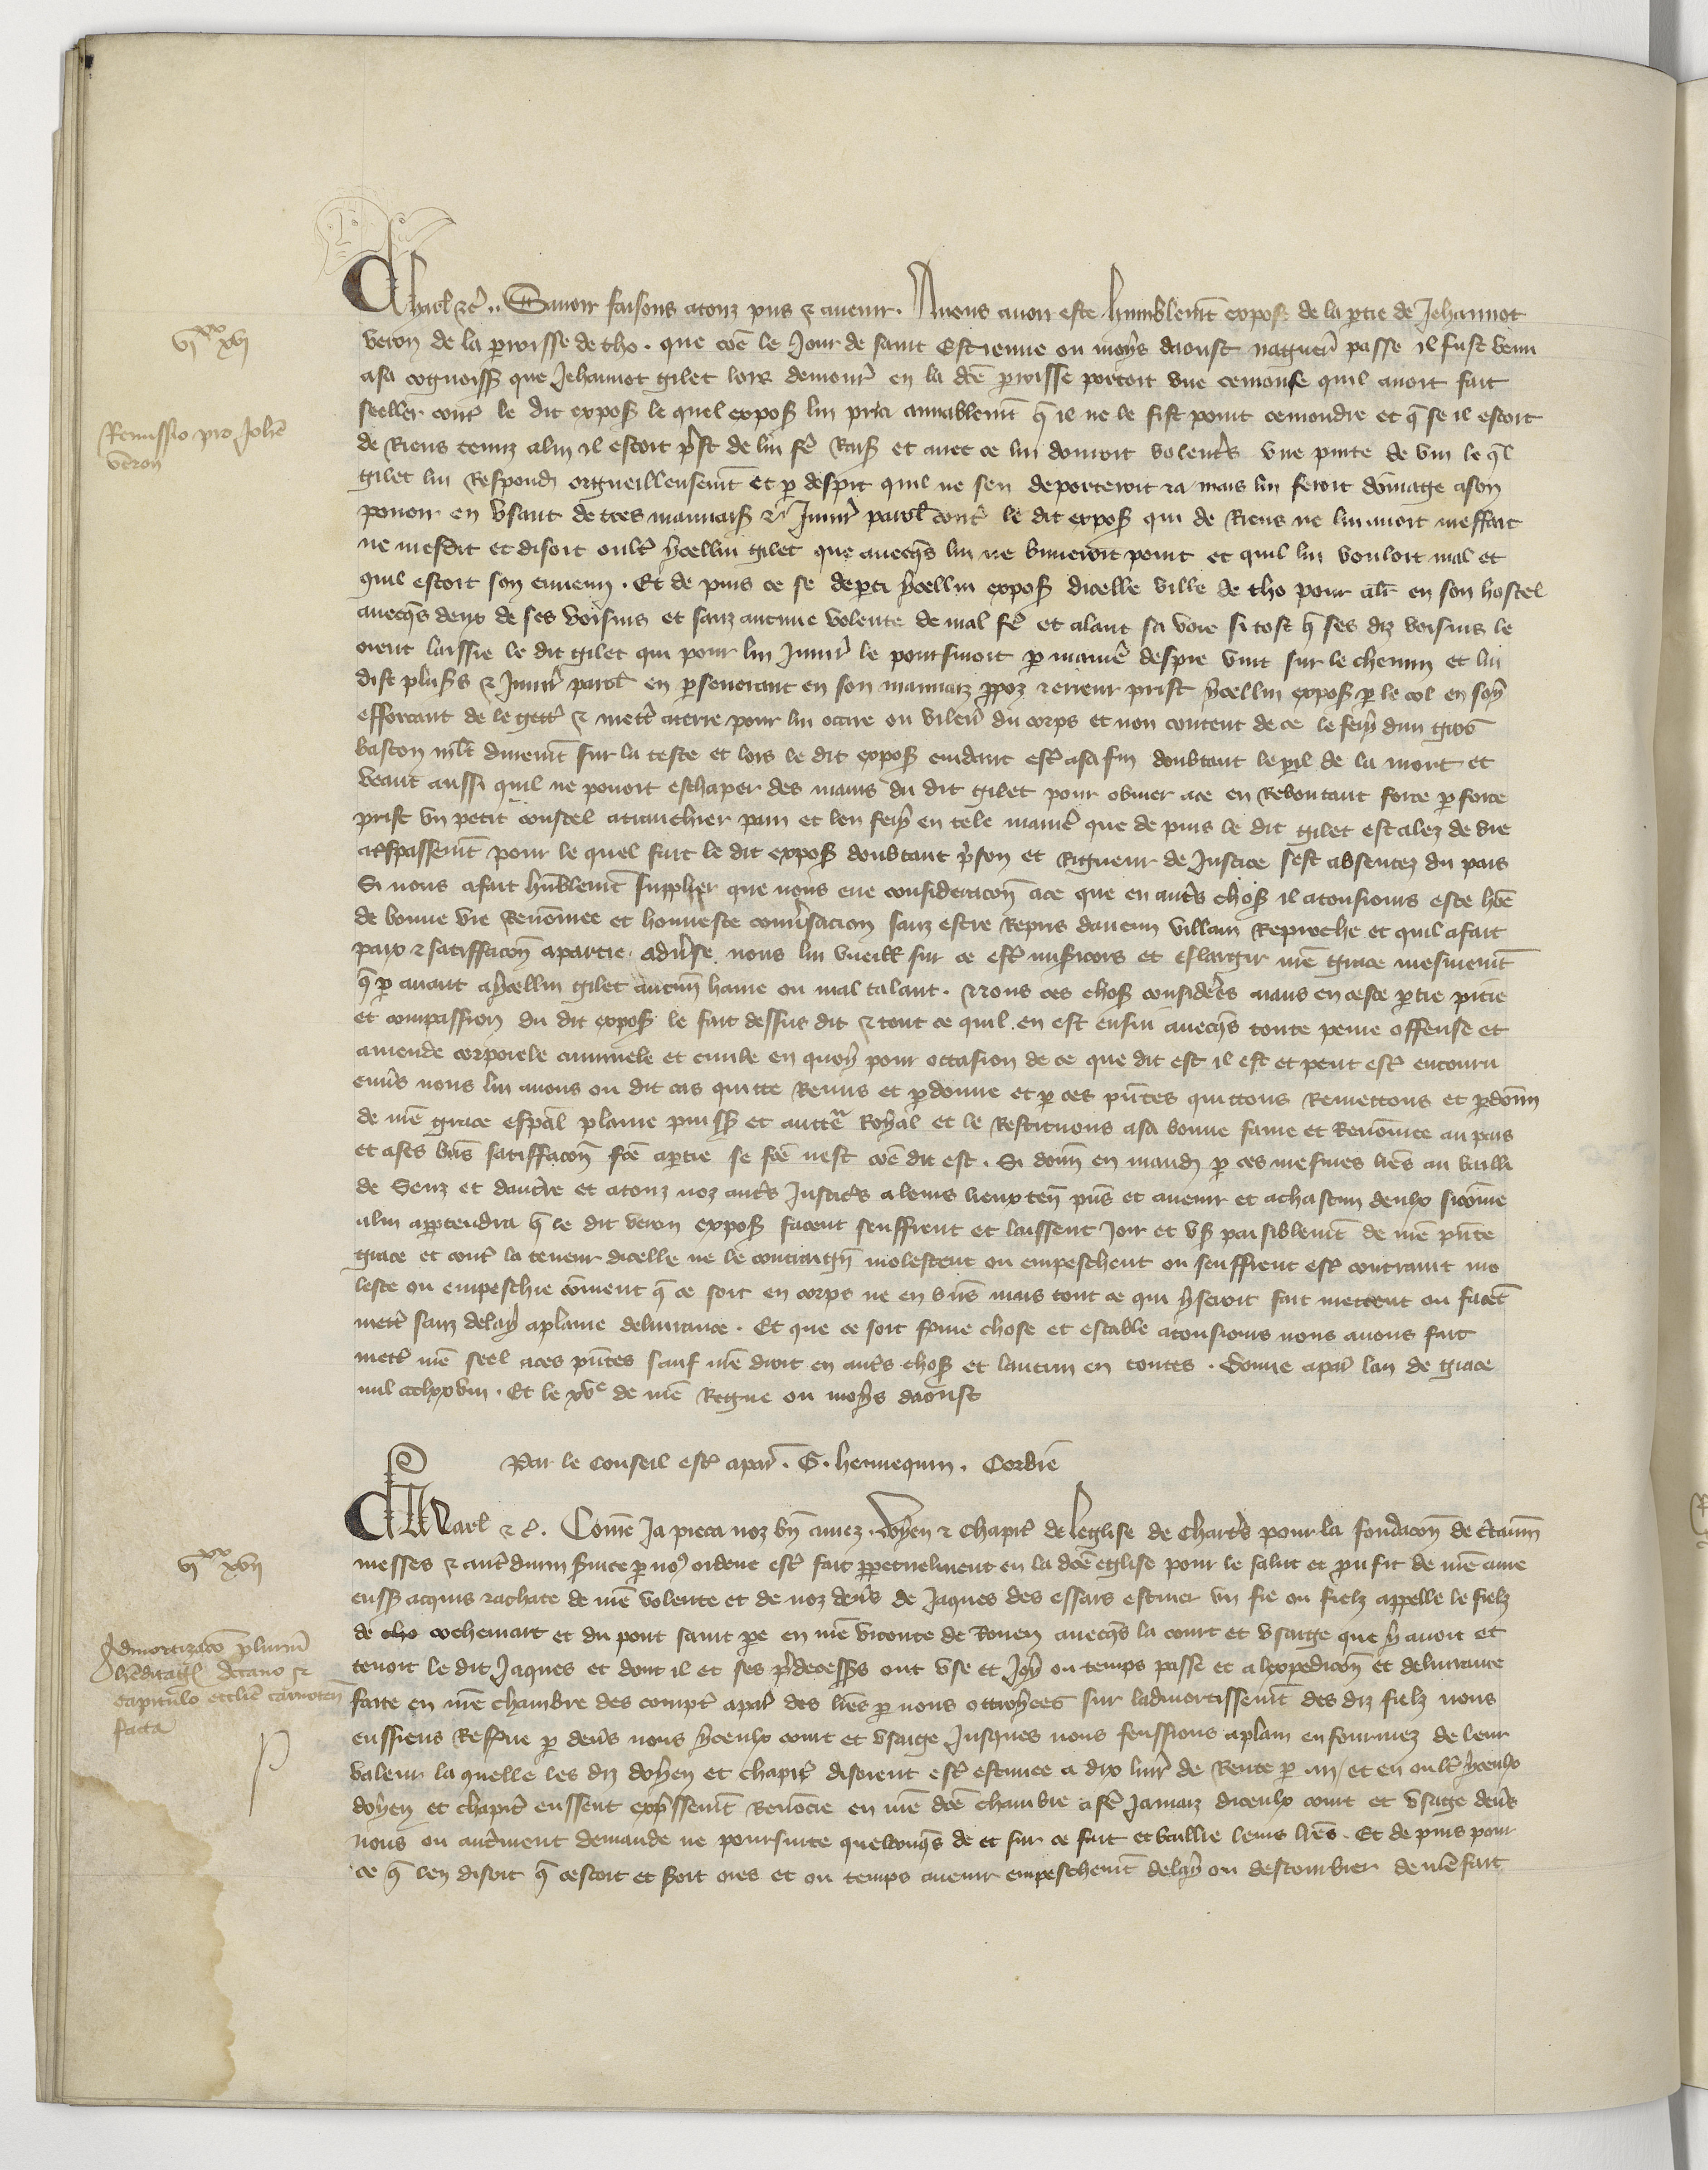 Charl etc. Savoir faisons a touz pns et avenir. A nous avoir este humblemt expose de la ptie de Jehannot
vi xx xvi
veron de la parroisse de tho. que coe le Jour de saint Estienne ou moys daoust naguer passe il fust venu
a sa cognoiss que Jehannot gilet lors demour en la de parroisse portoit une cemonse quil avoit fait
seeller contre le dit expos le quel expos lui pria amiablemt q il ne le fist point cemondre et q se il estoit
Remissio pro Johe
veron
de Riens tenuz a lui il estoit prest de lui fe Rais et avec ce lui donroit volentrs une pinte de vin le ql
gilet lui Respondi orgueilleusemt et p despit quil ne sen deporteroit ia mais lui feroit domage a son
povoir en usant de tres mauvaises et Injur parol contre le dit expos qui de Riens ne lui avoit meffait
ne mesdit et disoit oultre ycellui gilet que avecqs lui ne buveroit point et quil lui vouloit mal et
quil estoit son ennemi. Et de puis ce se departi ycellui expos dicelle ville de tho pour aler en son hostel
avecqs deux de ses voisins et sanz aucune volente de mal fe et alant sa voie si tost q ses diz voisins le
orent laissie le dit gilet qui pour lui Injur le poursuioit p manie despie vint sur le chemin et lui
dist plus et Injur parol en perseverant en son mauvaiz ppoz et erreur prist ycellui expos p le col en soy
efforcant de le gett et mett a terre pour lui occire ou vilen du corps et non content de ce le fery dun gros
baston mlt durement sur la teste et lors le dit expos cuidant est a sa fin doubtant le pil de la mort et
veant aussi quil ne povoit eschaper des mains du dit gilet pour obvier a ce en Reboutant force p force
prist un petit coustel a tranchier pain et len fery en tele manie que de puis le dit gilet est alez de vie
a trespassemt pour le quel fait le dit expos doubtant prison et Rigueur de Justice sest absentez du pais
Si nous a fait humblemt supplier que nous eue consideracon a ce que en autrs chos il a tousiours este hoe
de bonne vie Renommee et honneste conversacion sanz estre Repris daucun villain Reproche et quil a fait
paix et satiffacon a partie adverse nous lui vueill sur ce est misicors et eslargir nre grace mesmemt
q p avant a ycellui gilet aucun haine ou mal talant. Et nous ces chos considers aians en ceste ptie pitie
et compassion du dit expos le fait dessus dit et tout ce quil en est ensui avecqs toute peine offense et
amende corporele criminele et civile en quoy pour occasion de ce que dit est il est et peut est encouru
envrs nous lui avons ou dit cas quitte Remis et pdonne et p ces pntes quittons Remettons et pdonn
de nre grace espal plaine puiss et auctte Royal et le Restituons a sa bonne fame et Renommee au pais
et a ses biens satiffacon fce a ptie se fce nest coe dit est. Si donn en mand p ces mesmes lres au bailli
de Senz et daucrre et a touz noz autrs Justicrs a leurs lieux ten pns et avenir et a chascun deulx si come
a lui appartendra q le dit veron expos facent seuffrent et laissent Joir et us paisiblemt de nre pnte
grace et contre la teneur dicelle ne le contraign molestent ou empeschent ou seuffrent est contraint mo
leste ou empeschie coment q ce soit en corps ne en biens mais tout ce qui y seroit fait mettent ou facent
mett sanz delay a plaine delivrance. Et que ce soit ferme chose et estable a tousiours nous avons fait
mett nre seel a ces pntes sauf nre droit en autrs chos et lautrui en toutes. Donne a par lan de grace
mil ccclxxviii. Et le xve de nre Regne ou moys daoust
Par le Conseil est a par. G. hennequin. Cordie
Charl etc. Come Ja pieca noz bn amez Doyen et Chapit de leglise de Chartrs pour la fondacon de ctain
vi xx xvii
messes et autre divin service p nos ordene est fait perpetuelment en la dce eglise pour le salut et prufit de nre ame
euss acquis et achate de nre volente et de noz deniers de Jaques des essars escuier un fie ou fielz appelle le fielz
de cho cochemart et du pont saint pe en nre viconte de Rouen avecqs la court et usaige que y avoit et
Admortizaco plurim
hereditag decano et
capitulo ecclie carnoten
facta
tenoit le dit Jaques et dont il et ses predecesss ont use et Joy ou temps passe et a lexpedicon et delivrance
faite en nre chambre des compt a par des lres p nous ottroyees sur ladmortissemt des diz fielz nous
eussiens Reserve p devers nous yceulx court et usaige Jusques nous feussions a plain enfourmez de leur
valeur la quelle les diz doyen et chapit disoient est estimee a dix livr de Rente p an et en oultre yceulx
doyen et chapit eussent expressemt Renoncie en nre dce chambre a fe Jamaiz diceulx court et usage devrs
nous ou autrement demande ne poursuite quelconqs de et sur ce fait et baillie leurs lres. Et de puis pour
ce q len disoit q cestoit et seroit ores et ou temps avenir empeschemt delay ou destourbier de nre fait